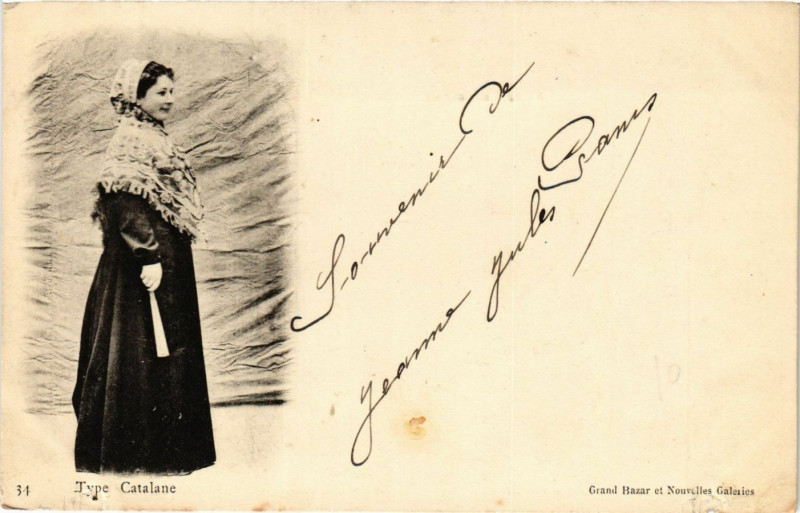 Souvenir de
Jeanne Jules
34 Type Catalane
Grand Bazar et Nouvelles Galeries
10